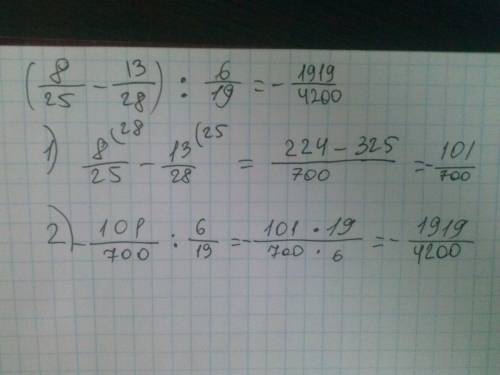 (8/25 − 13/28) : 6/19 = − 1919/4200
1) 8/25 (28 − 13/28 (25 = 224 − 325/700 = − 101/700
2) − 101/700 : 6/19 = − 101 · 19/700 · 6 = − 1919/4200